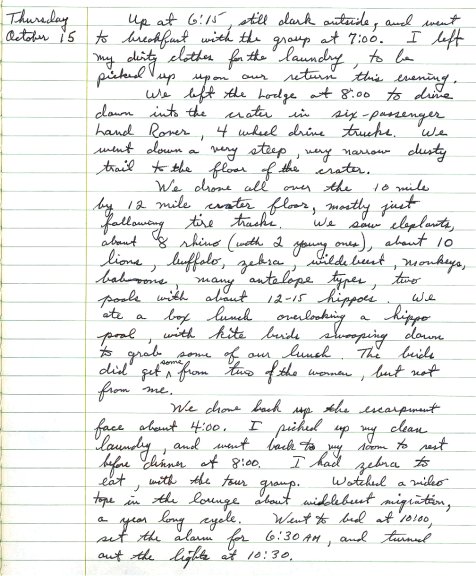 Thursday Up at 6:15, still dark outside, and went
October 15 to breakfast with the group at 7:00. I left
my dirty clothes for the laundry, to be
picked up upon our return this evening.
We left the Lodge at 8:00 to drive
down into the crater in six-passenger
Land Rover, 4 wheel drive trucks. We
went down a very steep, very narrow dusty
trail to the floor of the crater.
We drove all over the 10 mile
by 12 mile crater floor, mostly just
following tire tracks. We saw elephants,
about 8 rhino (with 2 young ones), about 10
lions, buffalo, zebra, wildebeest, monkeys,
baboons, many antelope types, two
pools with about 12-15 hippoes. We
ate a box lunch overlooking a hippo
pool, with kite birds swooping down
to grab some of our lunch. The birds
did get some from two of the women, but not
from me.
We drove back up the escarpment
face about 4:00. I picked up my clean
laundry, and went back to my room to rest
before dinner at 8:00. I had zebra to
eat, with the tour group. Watched a video
tape in the lounge about wildebeest migration,
a year long cycle. Went to bed at 10:00,
set the alarm for 6:30 AM, and turned
out the lights at 10:30.